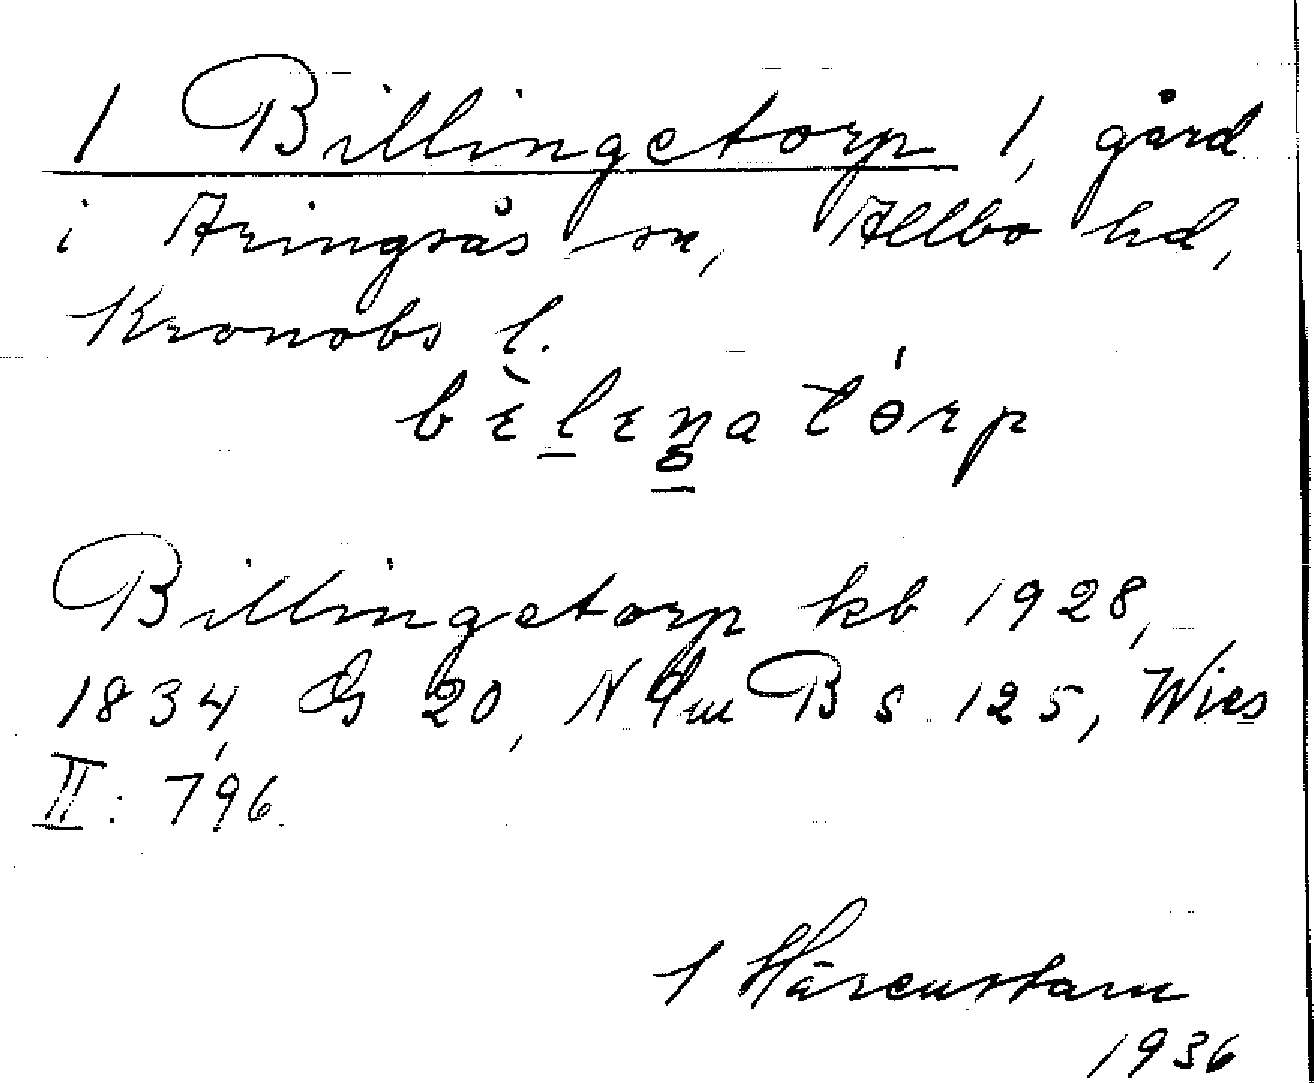 1 Billingetorp 1, gård
i Aringsås sn, Allbo hd,
Kronobs l.
Billingetorp kb 1928,
1834, GS 20, NSm B s. 125, Wies
II: 796.
1 Härenstam
1936